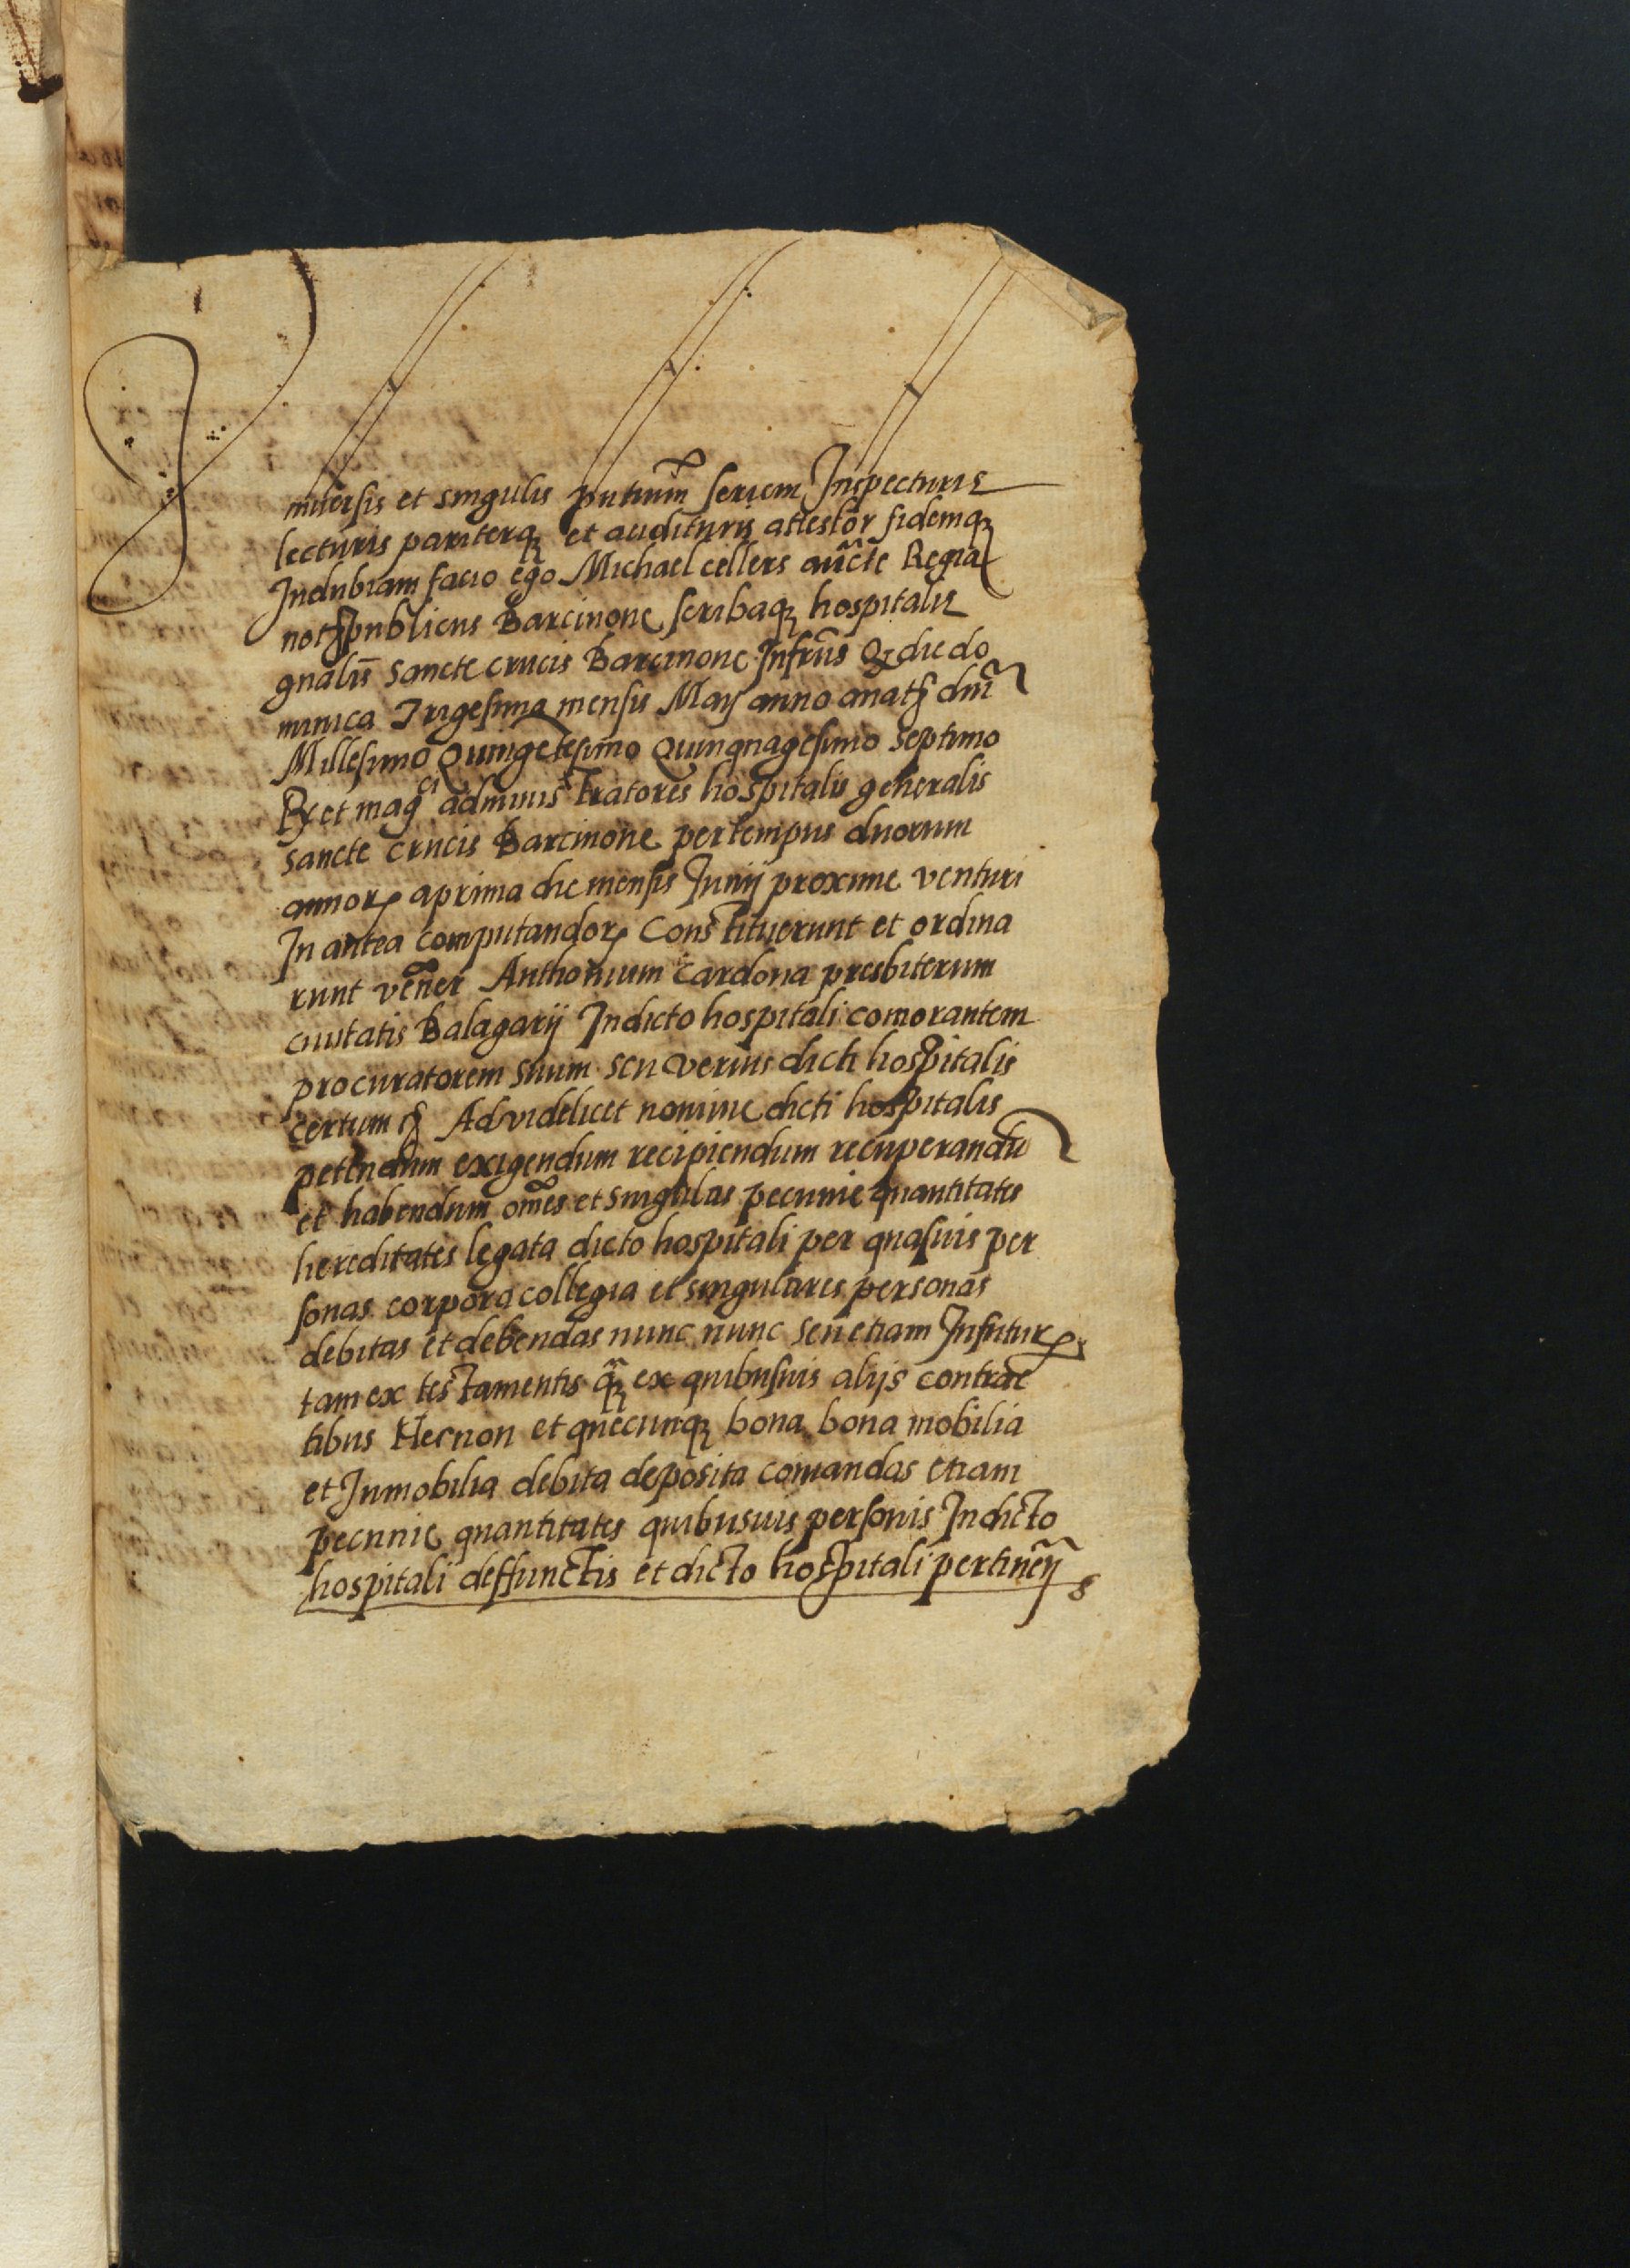 Vniuersis et singulis pntium seriem Inspecturis
lecturis pariterq et audituris attestor fidemq
Indubiam facio ego Michael cellers aucte Regia
not publicus Barcinone scribaq hospitalis
gnalis sancte crucis Barcinone Infrius Q die do
minica Trigesima mensis Maij anno anat dni
Millesimo Quingetesimo Quinquagesimo septimo
R et mag ci adminis tratores hospitalis generalis
sancte crucis Barcinone per tempus duorum
annor a prima die mensis Junij proxime venturi
In antea computandor Constituerunt et ordina
runt vener Anthonium Cardona presbiterum
ciuitatis Balagarij In dicto hospitali comorantem
procuratorem suum seu verius dicti hospitalis
certum &c Ad videlicet nomine dicti hospitalis
petendum exigendum recipiendum recuperandu
et habendum omes et singulas pecunie quantitates
hereditates legata dicto hospitali per quasuis per
sonas corpora collegia et singulares personas
debitas et debendas nunc nunc seu etiam Infutur
tam ex testamentis q ex quibusuis alijs contrac
tibus Necnon et quecunq bona bona mobilia
et Inmobilia debita deposita comandas etiam
pecunie quantitates quibusuis personis In dicto
hospitali deffunctis et dicto hospitali pertinen